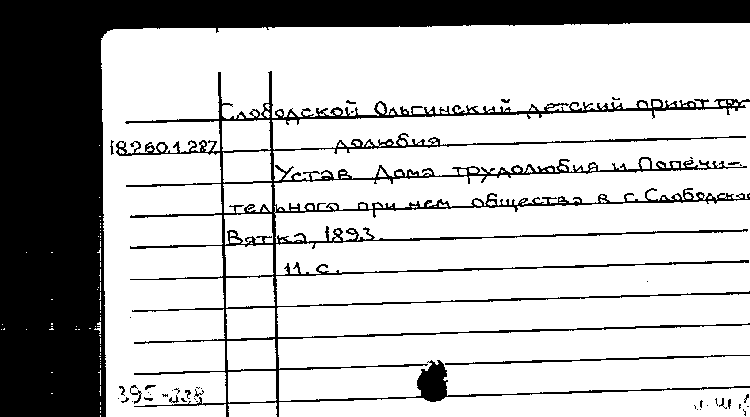 Слободской Ольгинский детский приют тру-
18.260.1.287 долюбия.
Устав Дома трудолюбия и Попечи-
тельного при нем общества в г. Слободско
Вятка, 1893.
11. с.
395-